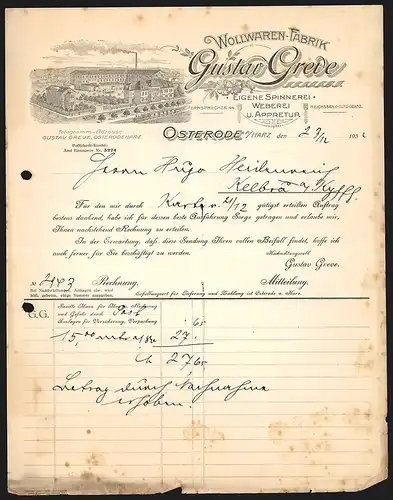 WOLLWAREN-FABRIK
Gustav Greve
EIGENE SPINNEREI
WEBEREI
U. APPRETUR.
FERNSPRECHER
Telegramm-Adresse
GUSTAV GREVE, OSTERODEHARZ
Postscheck-Konto:
Amt Hannover Nr. 5974
OSTERODE A/HARZ den 193
Herrn Hugo
Kelbra a/Kyffh.
Für den mir durch Karte v. 21/12 gütigst erteilten Auftrag
bestens dankend, habe ich für dessen beste Ausführung Sorge getragen und erlaube mir,
Ihnen nachstehend Rechnung zu erteilen.
In der Erwartung, daß diese Sendung Ihren vollen Beifall findet, hoffe ich
auch ferner für Sie beschäftigt zu werden.
Hochachtungsvoll
Gustav Greve.
№ Rechnung. Mitteilung.
Bei Nachbestellungen, Anfragen usw. wird
gebeten, obige Nummer anzugeben.
Erfüllungsort für Lieferung und Zahlung ist Osterode a. Harz.
G.G. Sandte Ihnen für Ihre Rechnung
und Gefahr durch Post
Auslagen für Versicherung, Verpackung 65
15,00 27.
27,65
Betrag durch Nachnahme
erhoben.